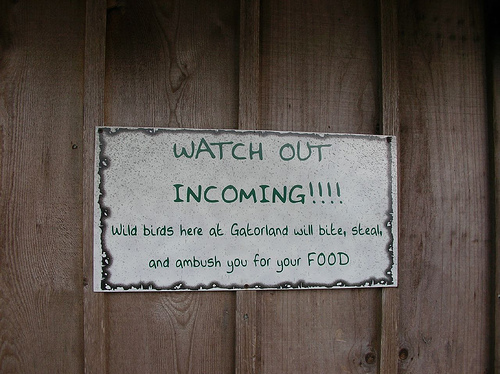 WATCH OUT
INCOMING!!!!
Wild birds here at Gatorland will bite, steal,
and ambush you for your FOOD